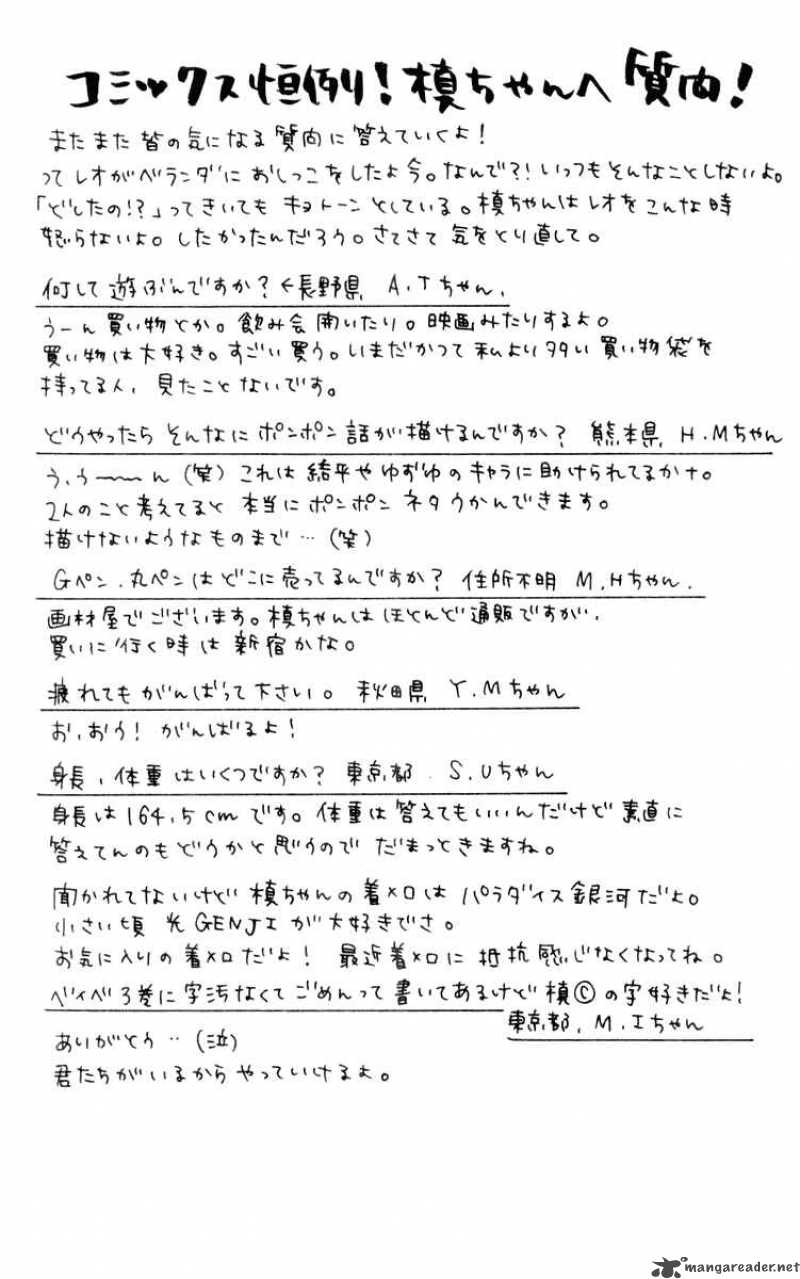 コミックス恒例!槙ちゃんへ質問!
またまた皆の気になる質問に答えていくよ!
ってレオがベランダにおしっこをしたよ今。なんで?!いつもそんなことしないよ。
「どしたの!?」ってきいてもキョトーンとしている。槙ちゃんはレオをこんな時
怒らないよ。したかったんだろう。さてさて気をとり直して。
何して遊ぶんですか?←長野県 A.Tちゃん.
うーん買い物とか。飲み会開いたり。映画みたりするよ。
買い物は大好き。すごい買う。いまだかつて私より多い買い物袋を
持ってる人、見たことないです。
どうやったらそんなにポンポン話が描けるんですか? 熊本県 H.Mちゃん
う、う〜〜ん(笑)これは結平やゆずゆのキャラに助けられてるかナ。
2人のこと考えてると本当にポンポンネタうかんできます。
描けないようなものまで…(笑)
Gペン.丸ペンはどこに売ってるんですか? 住所不明 M.Hちゃん.
画材屋でございます。槙ちゃんはほとんど通販ですが、
買いに行く時は新宿かな。
疲れてもがんばって下さい。 秋田県 Y.Mちゃん
お、おう!がんばるよ!
身長、体重はいくつですか? 東京都. S.Uちゃん
身長は164.5cmです。体重は答えてもいいんだけど素直に
答えてんのもどうかと思うのでだまっときますね。
聞かれてないけど槙ちゃんの着メロはパラダイス銀河だよ。
小さい頃 光GENJIが大好きでさ。
お気に入りの着メロだよ! 最近着メロに抵抗感じなくなってね。
ベイベ3巻に字汚なくてごめんって書いてあるけど槙©の字好きだよ!
東京都. M.Iちゃん
ありがとう…(泣)
君たちがいるからやっていけるよ。
mangareader.net